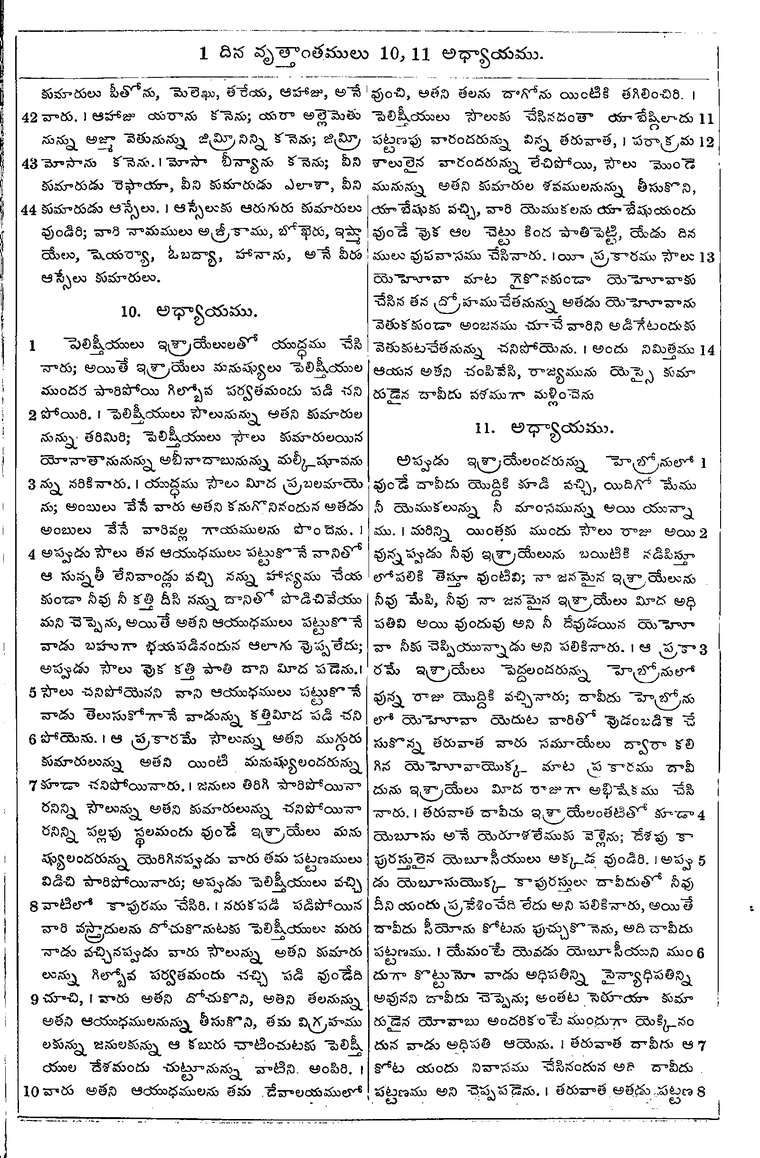 1 దిన వృత్తాంతములు 10, 11 అధ్యాయము.
కుమారులు పీతోను, మెలెఖు, తరేయ, ఆహాజు, అనే
42 వారు. । ఆహాజు యరాను కనెను; యరా అల్లెమెతు
నున్ను అజ్మా వెతునున్ను జిమ్రీనిన్ని కనెను; జిమ్రీ
43 మోసాను కనెను. । మోసా బీన్యాను కనెను; వీని
కుమారుడు రెఫాయా, వీని కుమారుడు ఎలాశా, వీని
44 కుమారుడు ఆస్సేలు. । ఆస్సేలుకు ఆరుగురు కుమారులు
వుండిరి; వారి నామములు అజ్రీకాము, బోఖెరు, ఇష్మా
యేలు, షెయర్యా, ఓబద్యా, హానాను, అనే వీరు
ఆస్సేలు కుమారులు.
10. అధ్యాయము.
1 పెలిష్తీయులు ఇశ్రాయేలులతో యుద్ధము చేసి
నారు; అయితే ఇశ్రాయేలు మనుష్యులు పెలిష్తీయుల
ముందర పారిపోయి గిల్బోవ పర్వతమందు పడి చని
2 పోయిరి. । పెలిష్తీయులు సౌలునున్ను అతని కుమారుల
నున్ను తరిమిరి; పెలిష్తీయులు సౌలు కుమారులయిన
యోనాతానునున్ను అబీనాదాబునున్ను మల్కీషూవను
3 న్ను నరికినారు. । యుద్ధము సౌలు మీద ప్రబలమాయె
ను; అంబులు వేసే వారు అతని కనుగొనినందున అతడు
అంబులు వేసే వారివల్ల గాయములను పొందెను. ।
4 అప్పుడు సౌలు తన ఆయుధములు పట్టుకొనే వానితో
ఆ సున్నతీ లేనివాండ్లు వచ్చి నన్ను హాస్యము చేయ
కుండా నీవు నీ కత్తి దీసి నన్ను దానితో పొడిచివేయు
మని చెప్పెను, అయితే అతని ఆయుధములు పట్టుకొనే
వాడు బహుగా భయపడినందున ఆలాగు వొప్పలేదు;
అప్పుడు సౌలు వొక కత్తి పాతి దాని మీద పడెను. ।
5 సౌలు చనిపోయెనని వాని ఆయుధములు పట్టుకొనే
వాడు తెలుసుకోగానే వాడున్ను కత్తిమీద పడి చని
6 పోయెను. । ఆ ప్రకారమే సౌలున్ను అతని ముగ్గురు
కుమారులున్ను అతని యింటి మనుష్యులందరున్ను
7 కూడా చనిపోయినారు. । జనులు తిరిగి పారిపోయినా
రనిన్ని సౌలున్ను అతని కుమారులున్ను చనిపోయినా
రనిన్ని పల్లపు స్థలమందు వుండే ఇశ్రాయేలు మను
ష్యులందరున్ను యెరిగినప్పుడు వారు తమ పట్టణములు
విడిచి పారిపోయినారు; అప్పుడు పెలిష్తీయులు వచ్చి
8 వాటిలో కాపురము చేసిరి. । నరుకపడి పడిపోయిన
వారి వస్త్రాదులను దోచుకొనుటకు పెలిష్తీయులు మరు
నాడు వచ్చినప్పుడు వారు సౌలున్ను అతని కుమారు
లున్ను గిల్బోవ పర్వతమందు చచ్చి పడి వుండేది
9 చూచి, । వారు అతని దోచుకొని, అతని తలనున్ను
అతని ఆయుధములనున్ను తీసుకొని, తమ విగ్రహము
లకున్ను జనులకున్ను ఆ కబురు చాటించుటకు పెలిష్తీ
యుల దేశమందు చుట్టూనున్ను వాటిని. అంపిరి. ।
10 వారు అతని ఆయుధములను తమ దేవాలయములో
వుంచి, అతని తలను దాగోను యింటికి తగిలించిరి. ।
పెలిష్తీయులు సౌలుకు చేసినదంతా యాబేష్గిలాదు 11
పట్టణపు వారందరున్ను విన్న తరువాత, । పరాక్రమ 12
శాలులైన వారందరున్ను లేచిపోయి, సౌలు మొండె
మునున్ను అతని కుమారుల శవములనున్ను తీసుకొని,
యాబేషుకు వచ్చి, వారి యెముకలను యాబేషుయందు
వుండే వొక ఆల చెట్టు కింద పాతిపెట్టి, యేడు దిన
ములు వుపవాసము చేసినారు. । యీ ప్రకారము సౌలు 13
యెహోవా మాట గైకొనకుండా యెహోవాకు
చేసిన తన ద్రోహముచేతనున్ను అతడు యెహోవాను
వెతుకకుండా అంజనము చూచే వారిని అడిగేటందుకు
వెతుకుటచేతనున్ను చనిపోయెను. । అందు నిమిత్తము 14
ఆయన అతని చంపివేసి, రాజ్యమును యెస్సై కుమా
రుడైన దావీదు వశముగా మళ్లించెను
11. అధ్యాయము.
అప్పుడు ఇశ్రాయేలందరున్ను హెబ్రోనులో 1
వుండే దావీదు యొద్దికి కూడి వచ్చి, యిదిగో మేము
నీ యెముకలున్ను నీ మాంసమున్ను అయి యున్నా
ము. । మరిన్ని యింతకు ముందు సౌలు రాజు అయి 2
వున్నప్పుడు నీవు ఇశ్రాయేలును బయిటికి నడిపిస్తూ
లోపలికి తెస్తూ వుంటివి; నా జనమైన ఇశ్రాయేలును
నీవు మేపి, నీవు నా జనమైన ఇశ్రాయేలు మీద అధి
పతివి అయి వుందువు అని నీ దేవుడయిన యెహో
వా నీకు చెప్పియున్నాడు అని పలికినారు. । ఆ ప్రకా 3
రమే ఇశ్రాయేలు పెద్దలందరున్ను హెబ్రోనులో
వున్న రాజు యొద్దికి వచ్చినారు; దావీదు హెబ్రోను
లో యెహోవా యెదుట వారితో వొడంబడిక చే
సుకొన్న తరువాత వారు సమూయేలు ద్వారా కలి
గిన యెహోవాయొక్క మాట ప్రకారము దావీ
దును ఇశ్రాయేలు మీద రాజుగా అభిషేకము చేసి
నారు. । తరువాత దావీదు ఇశ్రాయేలంతటితో కూడా 4
యెబూసు అనే యెరూశలేముకు వెళ్లెను; దేశపు కా
పురస్తులైన యెబూసీయులు అక్కడ వుండిరి. । అప్పు 5
డు యెబూసుయొక్క కాపురస్తులు దావీదుతో నీవు
దీని యందు ప్రవేశించేది లేదు అని పలికినారు, అయితే
దావీదు సీయోను కోటను పుచ్చుకొనెను, అది దావీదు
పట్టణము. । యేమంటే యెవడు యెబూసీయుని ముం 6
దుగా కొట్టునో వాడు అధిపతిన్ని సైన్యాధిపతిన్ని
అవునని దావీదు చెప్పెను; అంతట సెరూయా కుమా
రుడైన యోవాబు అందరికంటే ముందుగా యెక్కినం
దున వాడు అధిపతి ఆయెను. । తరువాత దావీదు ఆ 7
కోట యందు నివాసము చేసినందున అది దావీదు
పట్టణము అని చెప్పపడెను. । తరువాత అతడు పట్టణ 8